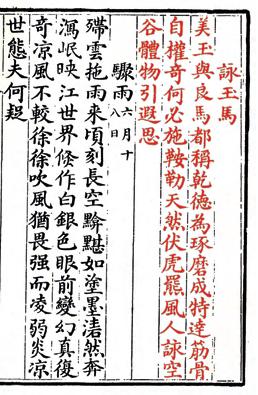 詠玉馬
美玉與良馬都稱乾德為琢磨成特達筋骨
自權奇何必施鞍勒天然伏虎羆風人詠空
谷體物引遐思
驟雨 六月十八日
殢雲拖雨來頃刻長空黲黮如塗墨然奔
瀉岷映江世界倏作白銀色眼前變幻真復
奇凉風不較徐徐吹風猶畏强而凌弱炎凉
世態夫何疑